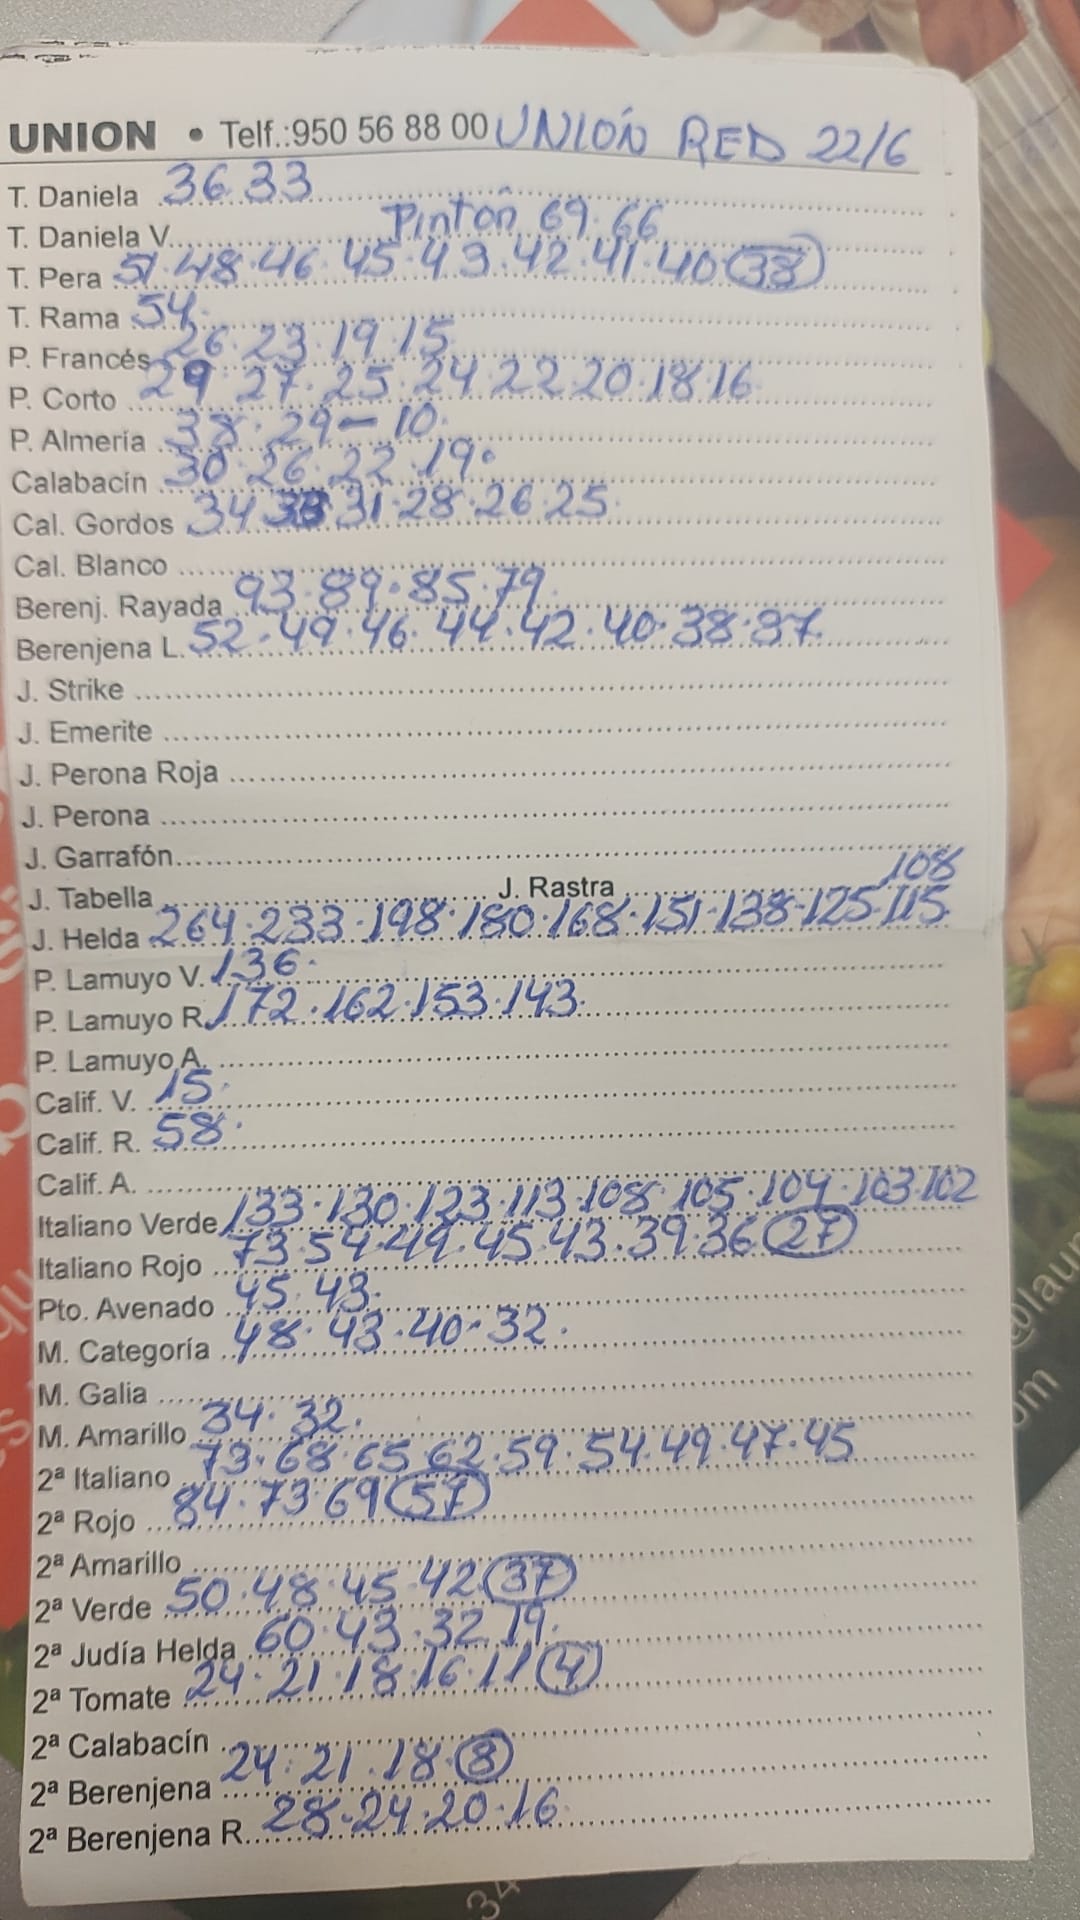 UNION • Telf.:950 56 88 00 UNIÓN RED 22/6
T. Daniela 36.33
T. Daniela V. Pintón 69.66
T. Pera 51.48.46.45.43.42.41.40.38
T. Rama 54.
P. Francés 26.23.19.15
P. Corto 29.27.25.24.22.20.18.16
P. Almería 38.29-10.
Calabacín 30.26.22.19.
Cal. Gordos 34 33 31.28.26.25.
Cal. Blanco
Berenj. Rayada 93.89.85.79.
Berenjena L. 52.49.46.44.42.40.38.37.
J. Strike
J. Emerite
J. Perona Roja
J. Perona
J. Garrafón
J. Tabella J. Rastra 108
J. Helda 264.233.198.180.168.151.138-125.115
P. Lamuyo V. 136.
P. Lamuyo R. 172.162.153.143.
P. Lamuyo A.
Calif. V. 15.
Calif. R. 58.
Calif. A.
Italiano Verde 133.130.123.113.108.105.104.103.102
Italiano Rojo 73.54.49.45.43.39.36 27
Pto. Avenado 45.43.
M. Categoría 48.43.40.32.
M. Galia
M. Amarillo 34.32.
2ª Italiano 73.68.65.62.59.54.49.47.45
2ª Rojo 84.73.69 57
2ª Amarillo
2ª Verde 50.48.45.42 37
2ª Judía Helda 60.43.32.19.
2ª Tomate 24.21.18.16.11 4
2ª Calabacín
2ª Berenjena 24.21.18.8
2ª Berenjena R. 28.24.20.16
@laun
om
34